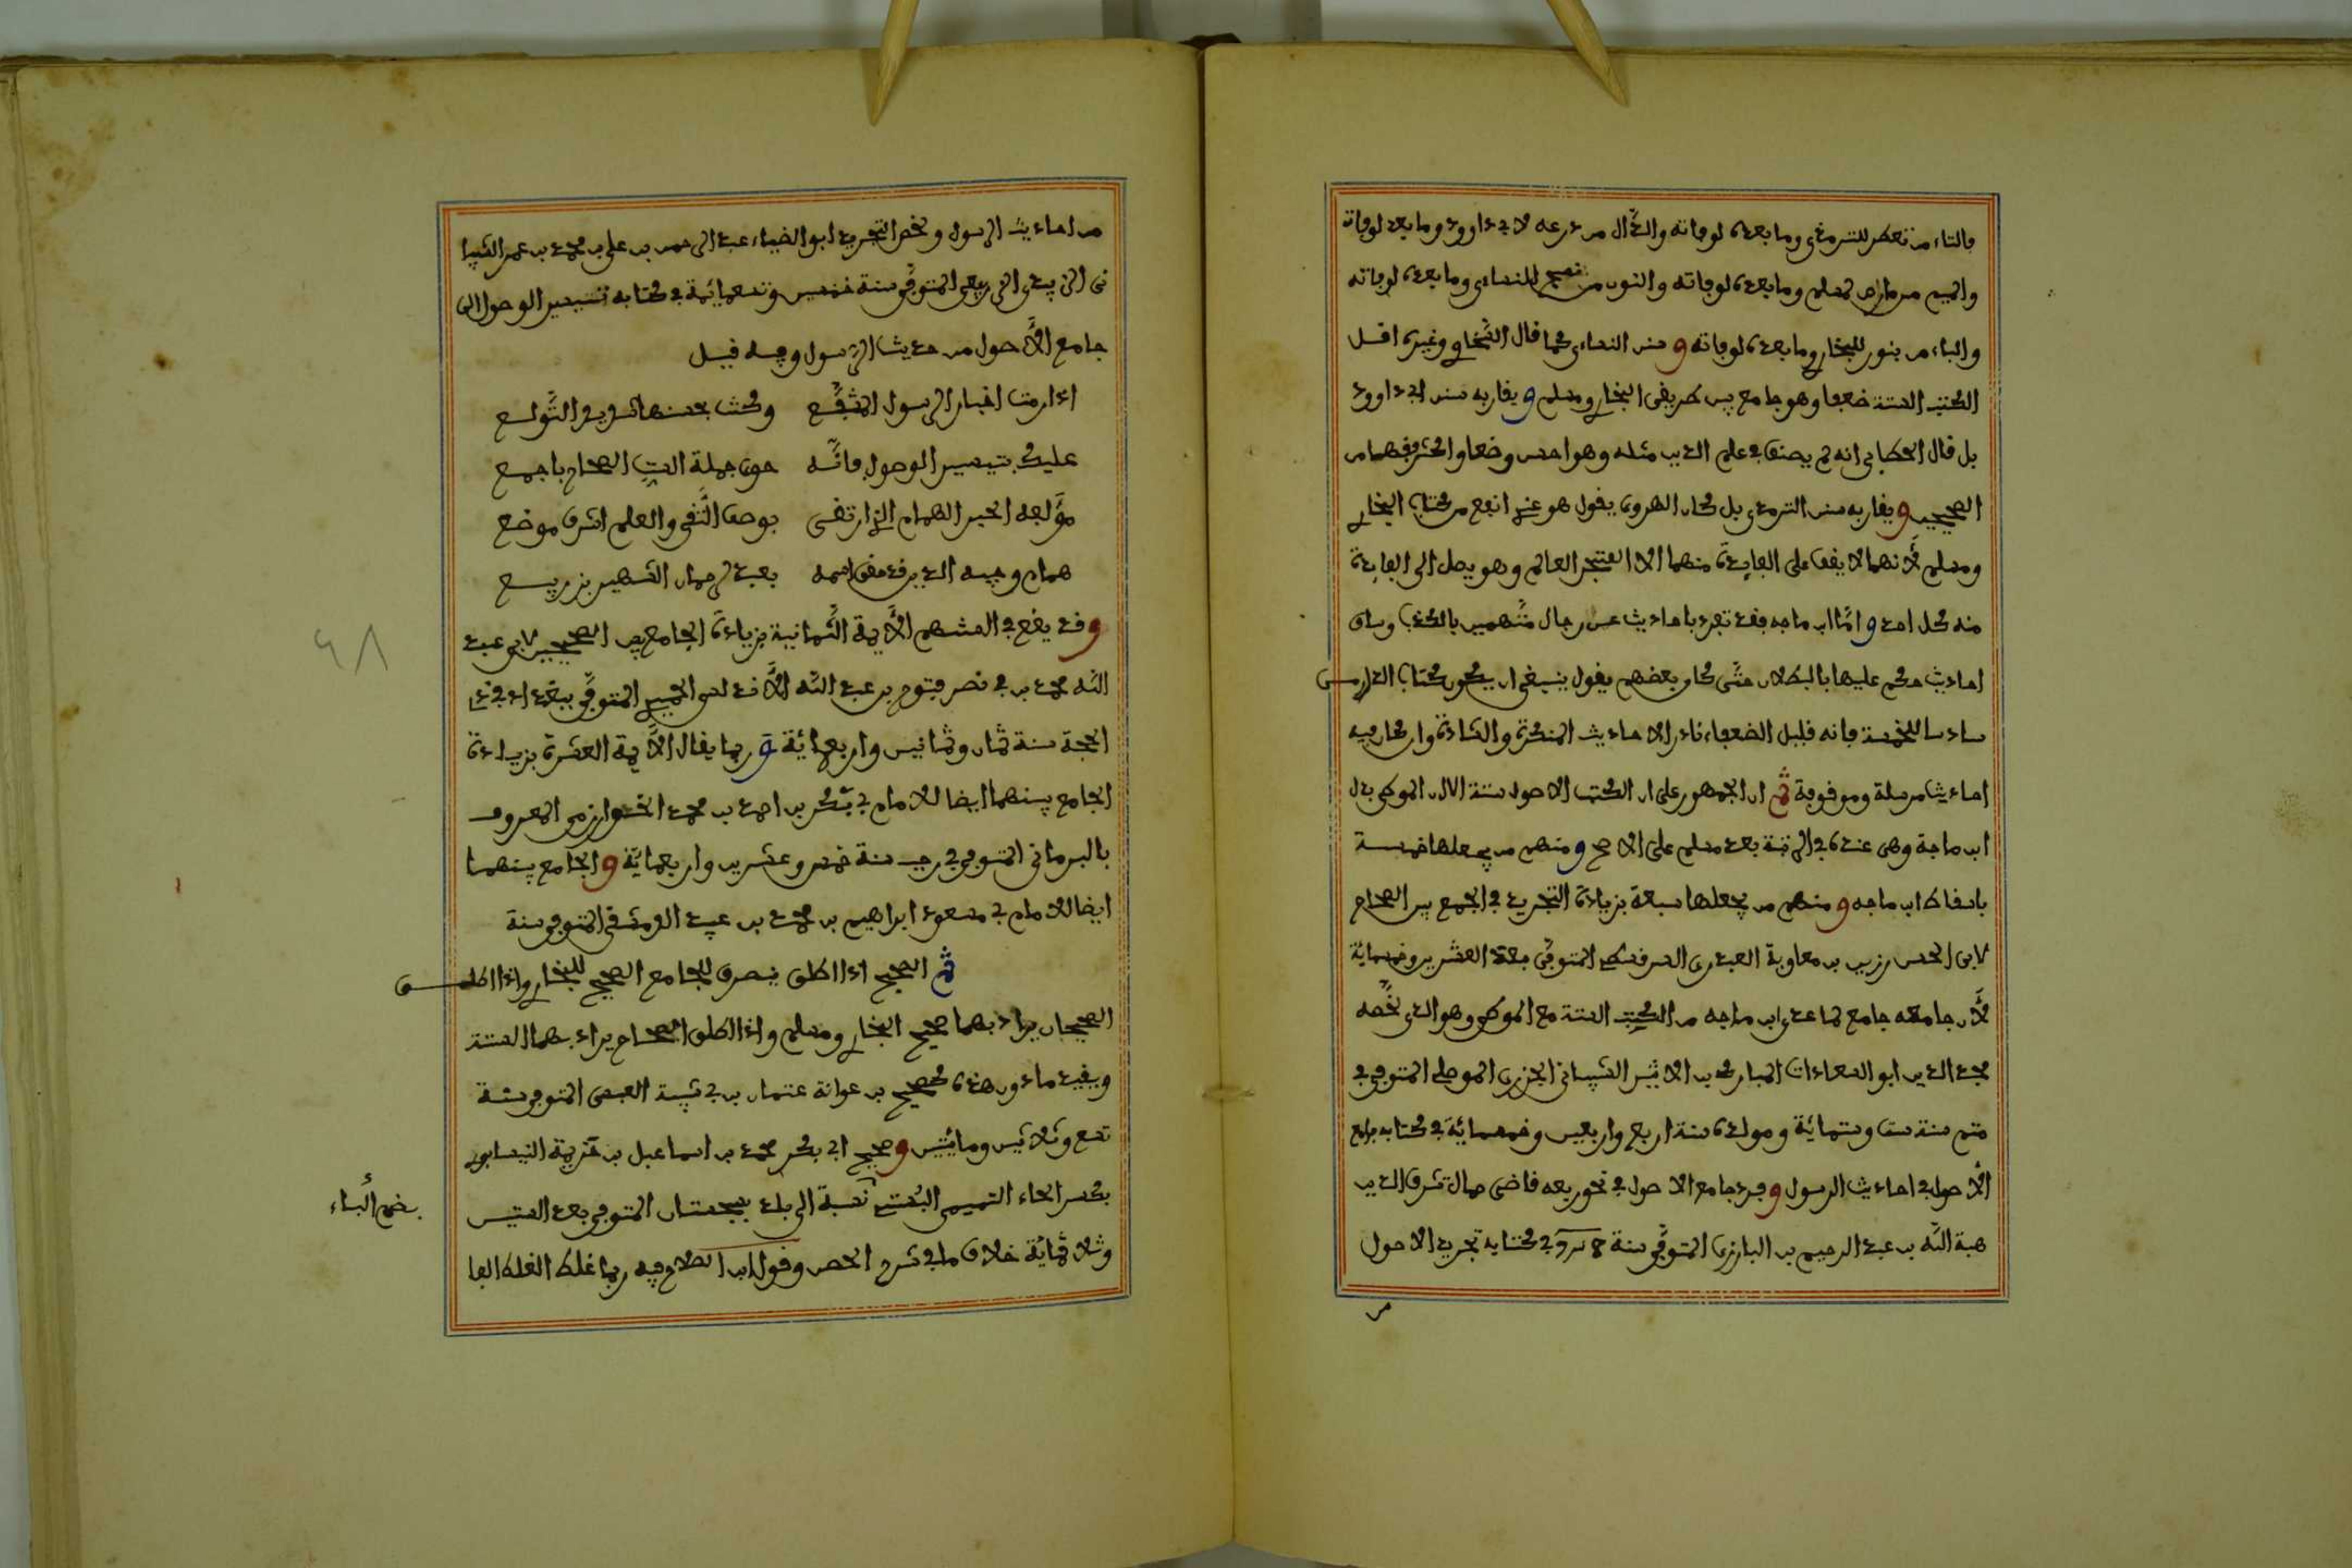 فالتاء من تعطر للترمذي وما بعده لوفاته والدَّال من درعه لابي داوود وما بعد لوفاته
والميم من مارس لمسلم وما بعده لوفاته والنون من نصح للنساءي وما بعده لوفاته
والباء من بنور للبخاري وما بعده لوفاته و سنن النساءي كما قال السَّخاوي وغيره اقل
الكتب الستة ضعيفا وهو جامع بين طريقى البخاري ومسلم و يقاربه سنن ابي داوود
بل قال الخطابى انه لم يصنف في علم الدين مثله وهو احسن وضعا واكثر فقها من
الصحيحين و يقاربه سنن الترمذي بل كان الهروي يقول هو عندي انفع من كتاب البخاري
ومسلم لأنهما لا يقف على الفايدة منهما الا المتبحر العالم وهو يصل الى الفايدة
منه كل احد و امَّا ابن ماجه فقد تفرد باحاديث عن رجال متَّهمين بالكذب وساق
احاديث حكم عليها بالبطلان حتَّى كان بعضهم يقول ينبغي ان يكون كتاب الدارمى
سادسا للخمسة فانه قليل الضعفاء نادر الاحاديث المنكرة والشاذة وان كان فيه
احاديث مرسلة وموقوفة ثم ان الجمهور على ان الكتب الاصول ستة الاان الموطى بدل
ابن ماجة وهى عنده في الرتبة بعد مسلم على الاصح و منهم من يجعلها خمسة
باسقاط ابن ماجه و منهم من يجعلها سبعة بزيادة التجريد في الجمع بين الصحاح
لابى الحسن رزين بن معاوية العبدري السرقسطي المتوفَّى بمكة العشرين وخمسماية
لأن جامعه جامع لما عدى ابن ماجه من الكتب الستة مع الموطى وهو الذى لخَّصه
مجد الدين ابو السعادات المبارك بن الاثير الشيبانى الجزري الموصلى المتوفى في
متم سنة ست وستماية و مولده سنة اربع واربعين وخمسماية في كتابه جامع
الأصول في احاديث الرسول و جرد جامع الاصول في نحو ربعه قاضى حماة شرف الدين
هبة اللَّه بن عبد الرحيم بن البارزى المتوفَّى سنة في كتابه تجريد الاصول
من
من احاديث الرسول و لخص التجريد ابو الضياء عبد الرحمن بن على بن محمد بن عمر الشيبا
نى الزبيدى الربيعى المتوفَّى سنة خمسين وتسعمائمة في كتابه تيسير الوصول الى
جامع الأصول من حديث الرسول وفيه قيل
اذا رمت اخبار الرسول المشفَّع وكنت بحسنها كثير التَّولع
عليك بتيسير الوصول فانَّه حوى جملة الستِّ الصحاح باجمع
مؤَلفه الحبر الهمام الذي ارتقى بوصف التُّقى والعلم اشرف موضع
همام وجيه الدين قد سمى اسمه بعبد الرحمان الشهير بن ربيع
و قد يقع في السنهم الأَيمة الثَّمانية بزيادة الجامع بين الصحيحين لابى عبد
اللَّه محمد بن ابي نصر فتوح بن عبد اللَّه الأَندلسى الحميدي المتوفَّى ببغداد في ذي
الحجة سنة ثمان وثمانين واربعمائة و ربما يقال الأَيمة العشرة بزيادة
الجامع بينهما ايضا للامام ابي بكر بن احمد بن محمد الخوارزمى المعروف
بالبرمانى المتوفى في رجب سنة خمس وعشرين واربعماية و الجامع بينهما
ايضا للامام ابي مسعود ابراهيم بن محمد بن عبيد الدمشقى المتوفى سنة
ثم الصحيح اذا اطلق ينصرف للجامع الصحيح للبخاري واذا اطلق
الصحيحان يراد بهما صحيح البخاري ومسلم واذا اطلق الصحاح يراد بهما الستة
ويقيد ما دون هذه كصحيح بن عوانة عثمان بن ابي شيبة العبسى المتوفى سنة
تسع وثلاثين ومايتين و صحيح ابي بكر محمد بن اسماعيل بن خزيمة النيسابوري
بكسر الحاء التميمى البُستي نسبة الى بلد بسجستان المتوفى بعد الستين
وثلاثماية خلاف ما في شرح الحصن وقول ابن الصلاح فيه ربما غلط الغلط الفا
بضم الباء
٤٨